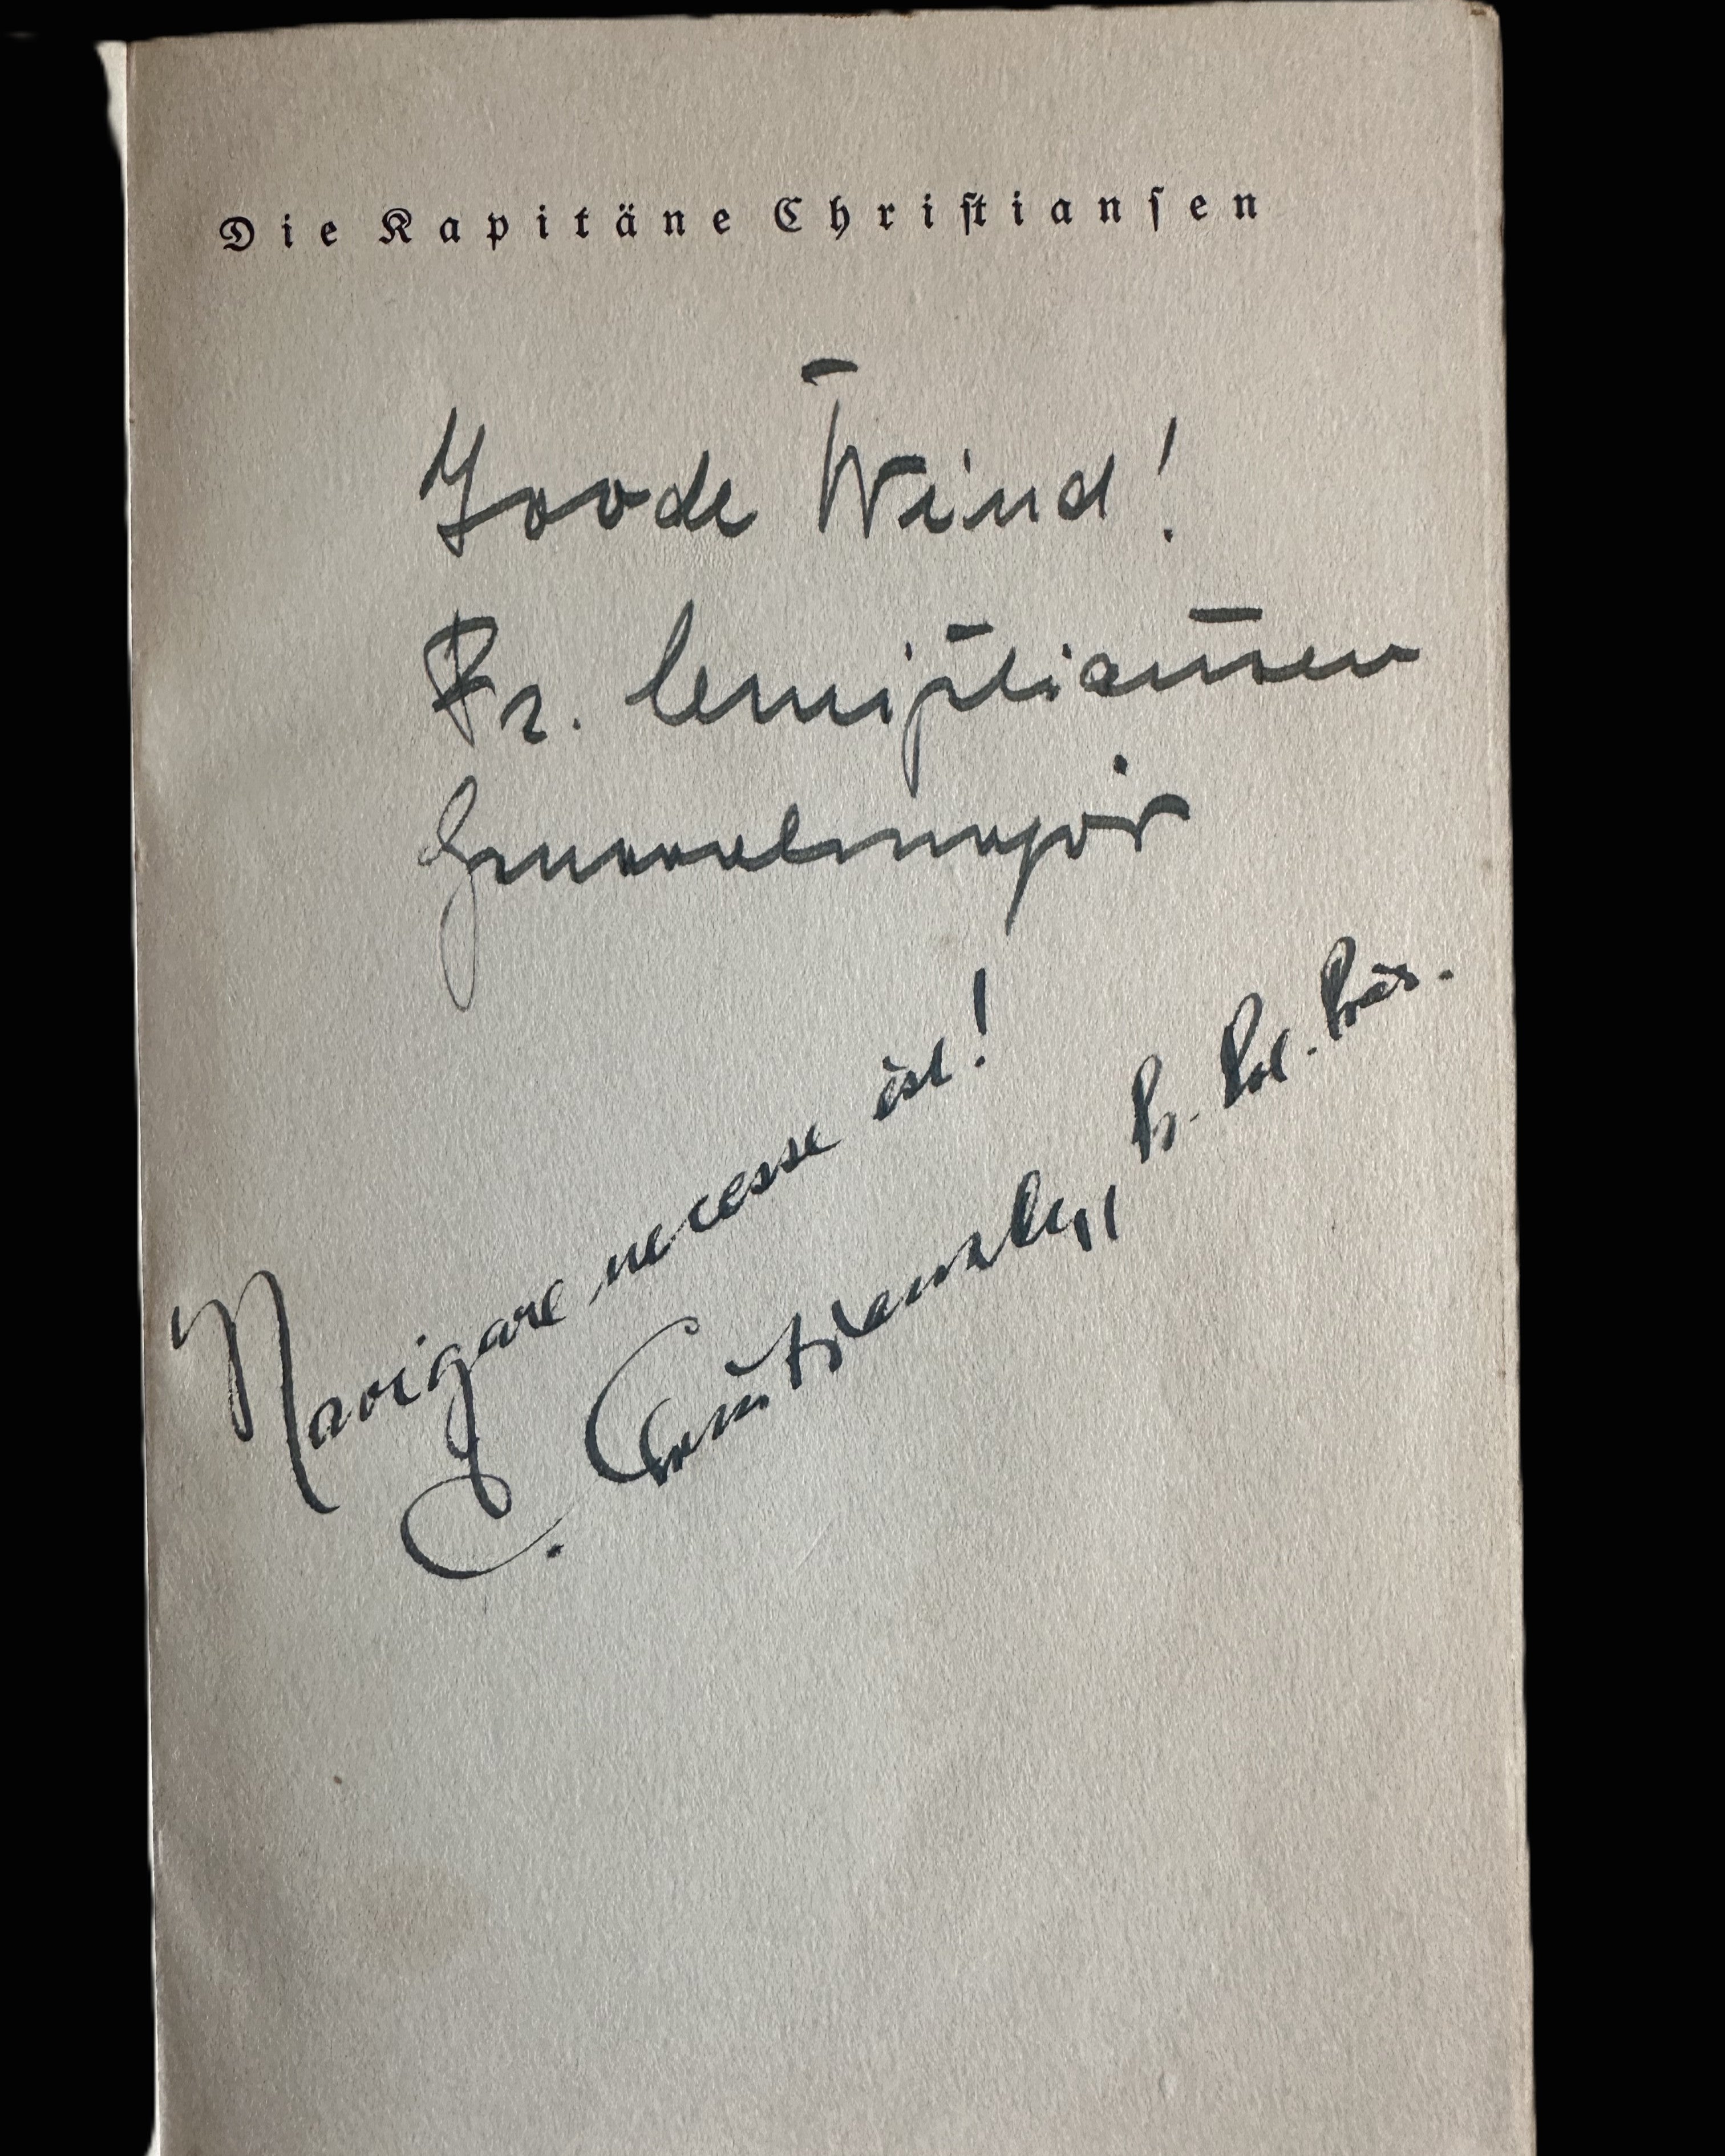 Die Kapitäne Christiansen
Goode Wind!
Fr. Christiansen
Generalmajor
Navigare necesse est!
C. Christiansen, Pr. Pol. Präs.